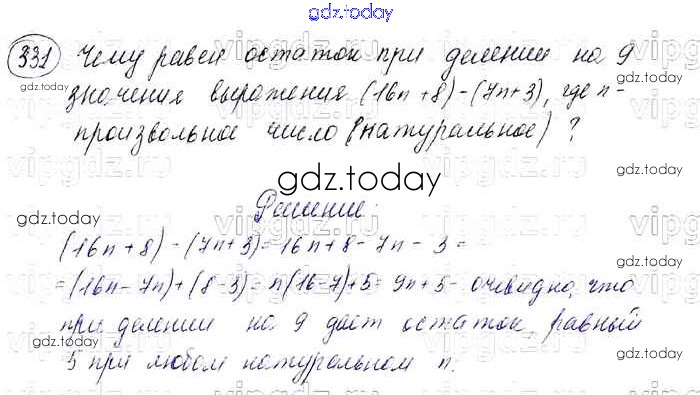 gdz.today
331 Чему равен остаток при делении на 9
значения выражения (16n+8)-(7n+3), где n-
gdz.today
gdz.today
произвольное число (натуральное)?
gdz.today
gdz.today
Решение:
(16n+8)-(7n+3)=16n+8-7n-3=
=(16n-7n)+(8-3)=n(16-7)+5=9n+5- очевидно, что
gdz.today
gdz.today
при делении на 9 даст остаток, равный
5 при любом натуральном n.
gdz.today